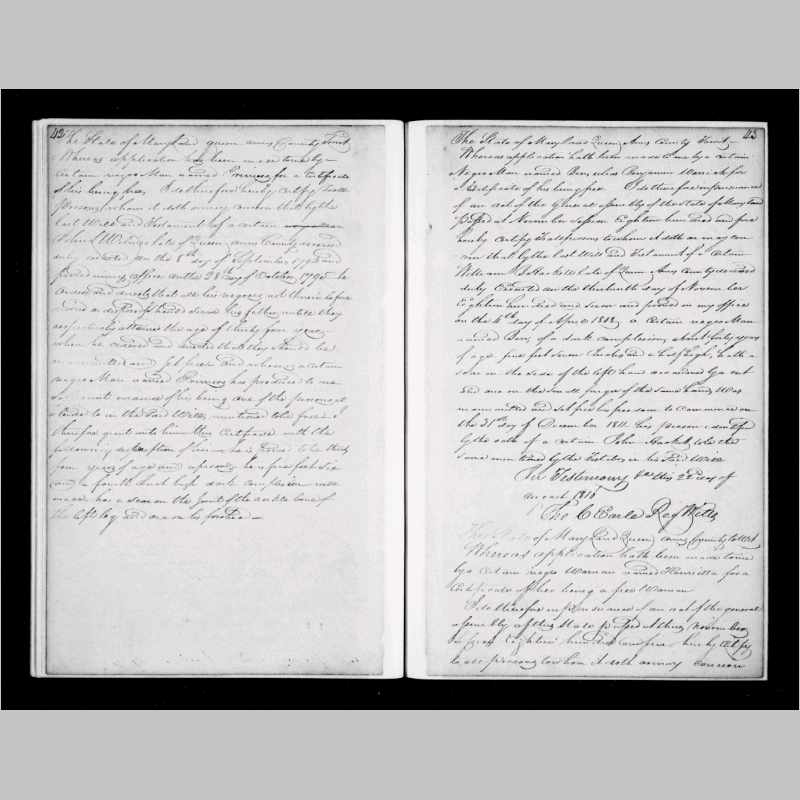 42
The State of Maryland queen anns County Sct
Whereas application has been made to me by a
certain negro Man named Pompey for a Certificate
of his being free, I do therefore hereby certify to all
persons whom it doth or may concern that by the
last Will and Testament of a certain
late of Queen anns County deceased
duly executed on the 8th day of September 1795 and
proved in my office on the 28 day of October 1795 he
ordered and directed that all his negroes not therein before
his father, when they
respectively attained the age of thirty four years
when he ordered and directed that they should be
manumitted and Set free and whereas a certain
negro Man named Pompey has produced to me
sufficient evidence of his being one of the persons
alluded to in the said Will, mentioned to be free I
therefore grant unto him this Certificate with the
following description of him
four years of age and upwards, he is five feet six
and a fourth Inches high dark complexion
has a scar on the Joint of the ankle bone of
the left leg and one on his forehead
43
The State of Maryland Queen Anns County Sct
Whereas application hath been made to me by a certain
Negro Man named Ben, who for
a Certificate of his being free. I do therefore in pursuance
of an act of the General assembly of the State of Maryland
passed at November Session Eighteen hundred and five
hereby certify to all persons to whom it doth or may con
cern that by the last Will and Testament of a Certain
William Hackett late of Queen Anns County deceased
duly Executed on the thirteenth day of November
Eighteen hundred and seven and proved in my office
on the 4th day of April 1808, a Certain negro Man
named Ben, of a dark complexion, about forty years
of age five feet seven Inches and a half high, hath a
scar in the side of the left hand occasioned by a cut
and one on the small finger of the same hand, Was
manumitted and set free his freedom to commence on
the 31st day of December 1811. his person identified
by the oath of a certain John Hackett, to be the
same mentioned by the Testator in his said Will
In Testimony &c this 2d day of
March 1815
Tho C Earle Reg Wills
The State of Maryland Queen anns County to Wit
Whereas application hath been made to me
by a Certain negro Woman named Henrietta for a
Certificate of her being a free Woman
I do therefore in pursuance of an act of the general
assembly of this State passed at their November
Session Eighteen hundred and five, hereby Certify
to all persons to whom it doth or may concern